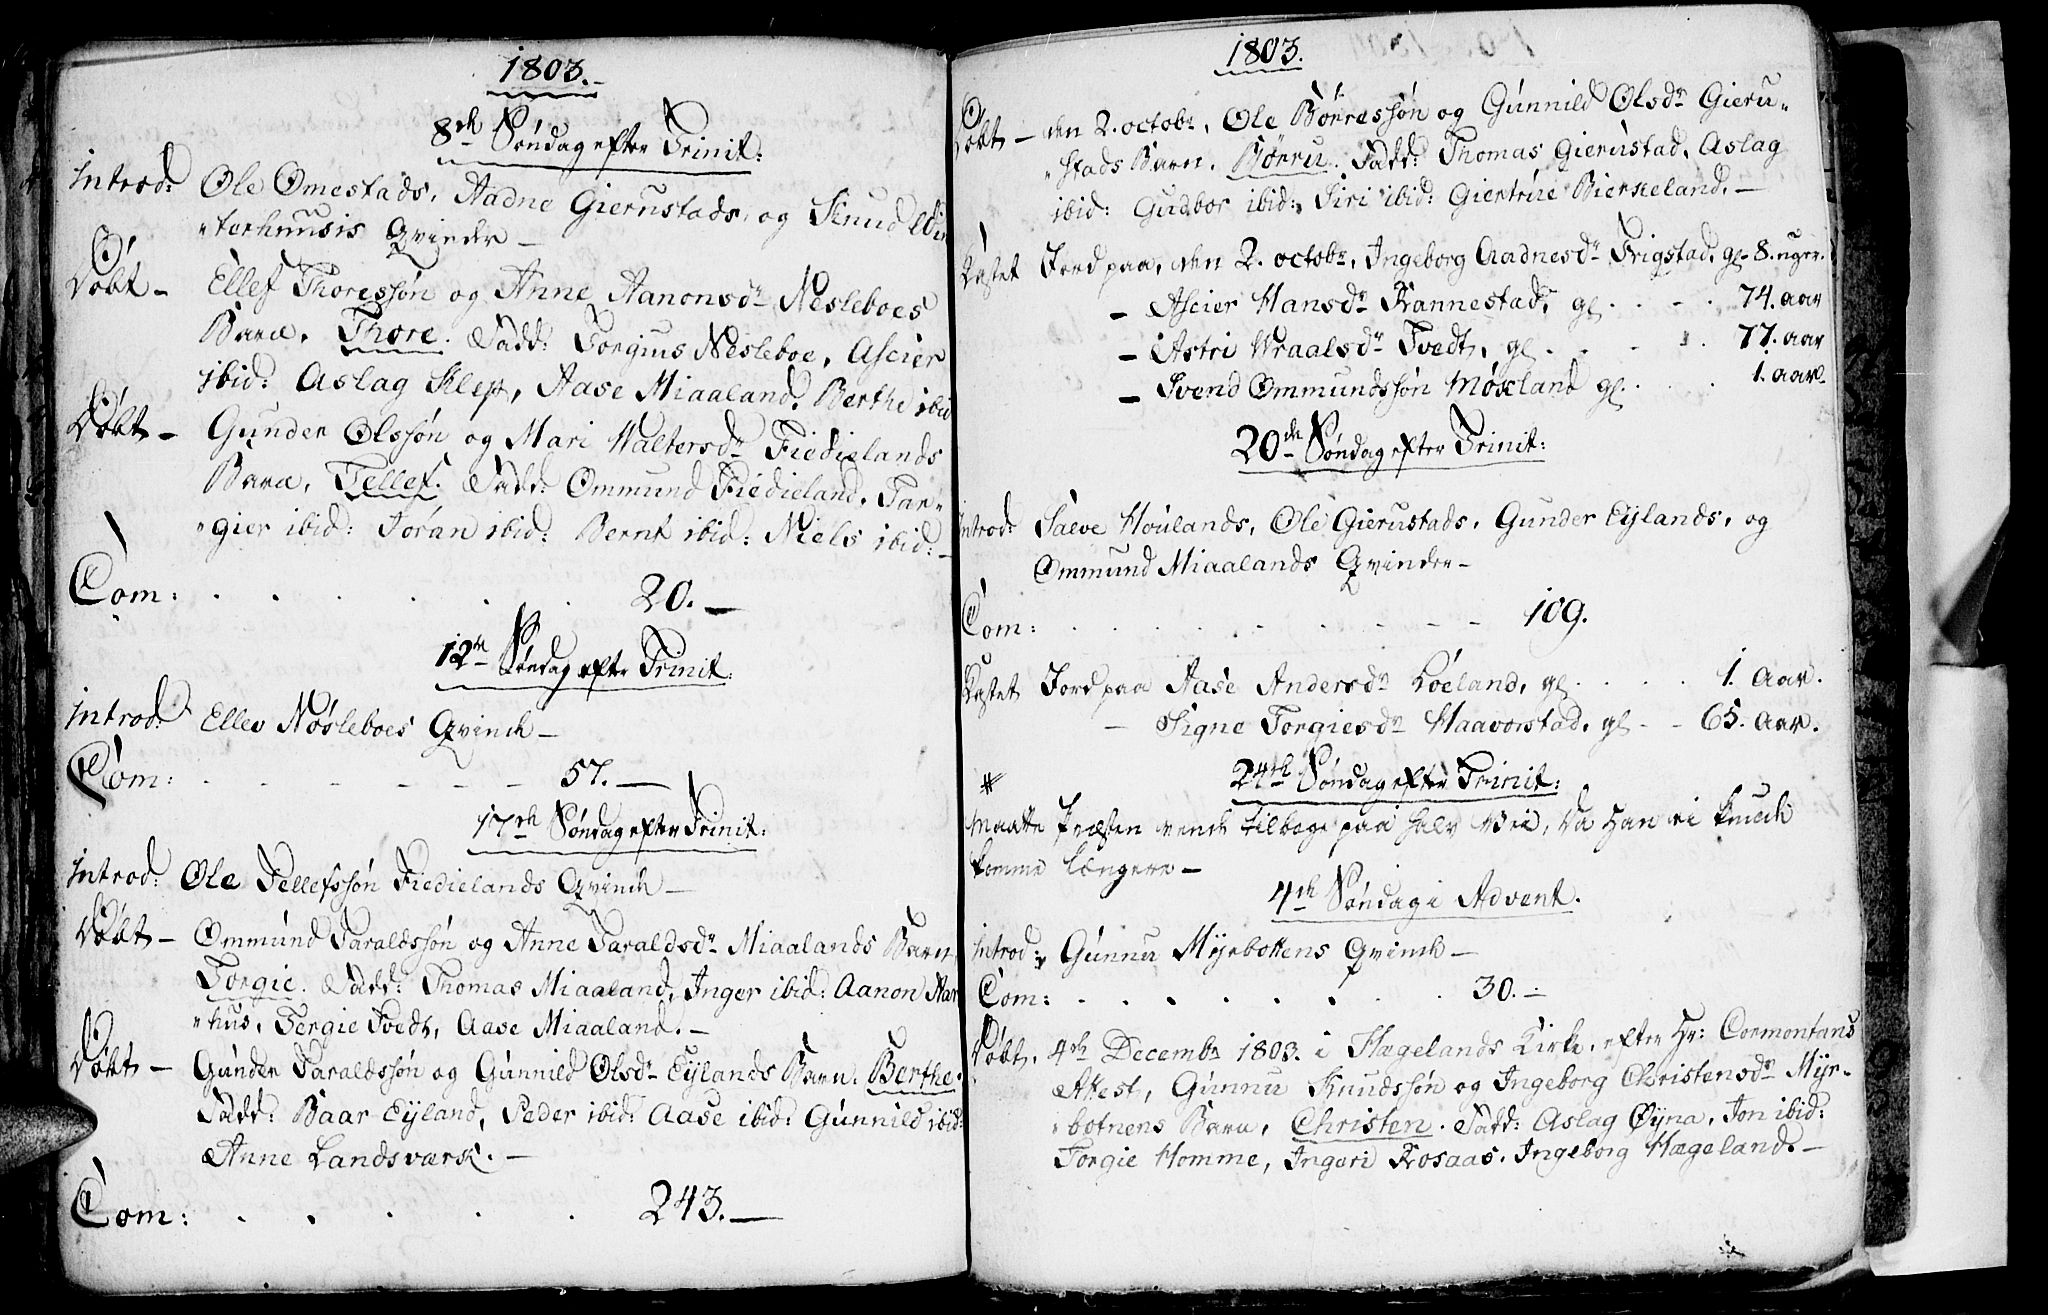 1803.
8de Søndag efter Trinit:
Introd: Ole Omestads, Aadne Gierustads, og Knud Win
"terhuusis Qvinder –
Døbt – Ellef Thoressøn og Anne Aanonsdr Nesleboes
Barn, Thore. Fadd: Torgius Nesleboe, Ascier
ibid: Aslag Klep, Aase Miaaland, Berthe ibid
Døbt – Gunder Olssøn og Mari Waltersdr Fiedielands
Barn, Tellef. Fadd: Ommund Fiedieland, Tar"
"gier ibid: Joran ibid: Bernt ibid: Niels ibid: –
Com: . . . . . . 20. –
12te Søndag efter Trinit:
Introd: Ellev Nøsleboes Qvinde –
Com: . – – – – – 57. –
17de Søndag efter Trinit:
Introd: Ole Tellefssøn Fiedielands Qvinde –
Døbt – Ommund Taraldssøn og Anne Taraldsdr Miaalands Barn
Torgie. Fadd: Thomas Miaaland, Inger ibid: Aanon Aar
"hus, Tergie Tvedt, Aase Miaaland. –
Døbt – Gunder Taraldssøn og Gunnild Olsdr Eylands Barn. Berthe.
Fadd: Baar Eyland, Peder ibid: Aase ibid: Gunnild ibid:
Anne Landsværk. –
Com: . . . . . 243. –
1803.
Døbt – den 2. octobr, Ole Børressøn og Gunnild Olsdr Gieru"
"stads Barn. Børru. Fadd: Thomas Gierustad, Aslag
ibid: Gudbor ibid: Siri ibid: Giertrue Bierkeland. –
Kastet Jord paa, den 2. octobr, Ingeborg Aadnesdr Frigstad, gl. 8. uger.
– Ascier Hansdr Kannestad, gl . . . 74. aar
– Astri Wraalsdr Tvedt, gl . . . 77. aar
– Svend Ommundssøn Moseland gl. . . 1. aar.
20de Søndag efter Trinit:
Introd: Salve Houlands, Ole Gierustads, Gunder Eylands, og
Ommund Miaalands Qvinder –
Com: . . . . . . . – – – 109.
Kastet Jord paa Aase Andersdr Løeland, gl . . . . 1. Aar.
– Signe Torgiesdr Haavorstad, gl – – 65. Aar.
24de Søndag efter Trinit:
#
Maatte Præsten vende tilbage paa halv Vei, da Han ei kunde
komme længere –
4de Søndag i Advent.
Introd: Gunnu Myrbottens Qvinde –
Com: . . . . . . . . 30. –
Døbt. 4de Decembr 1803. i Hægelands Kirke, efter Hr: Cormontans
Attest, Gunnu Knudssøn og Ingeborg Christensdr Myr-
"botnens Barn, Christen. Fadd: Aslag Øyna, Jon ibid:
Torgie Homme, Ingeri Rosaas, Ingeborg Hægeland. –